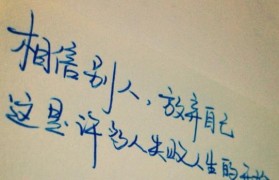 相信别人，放弃自己
这是许多人失败人生的开始